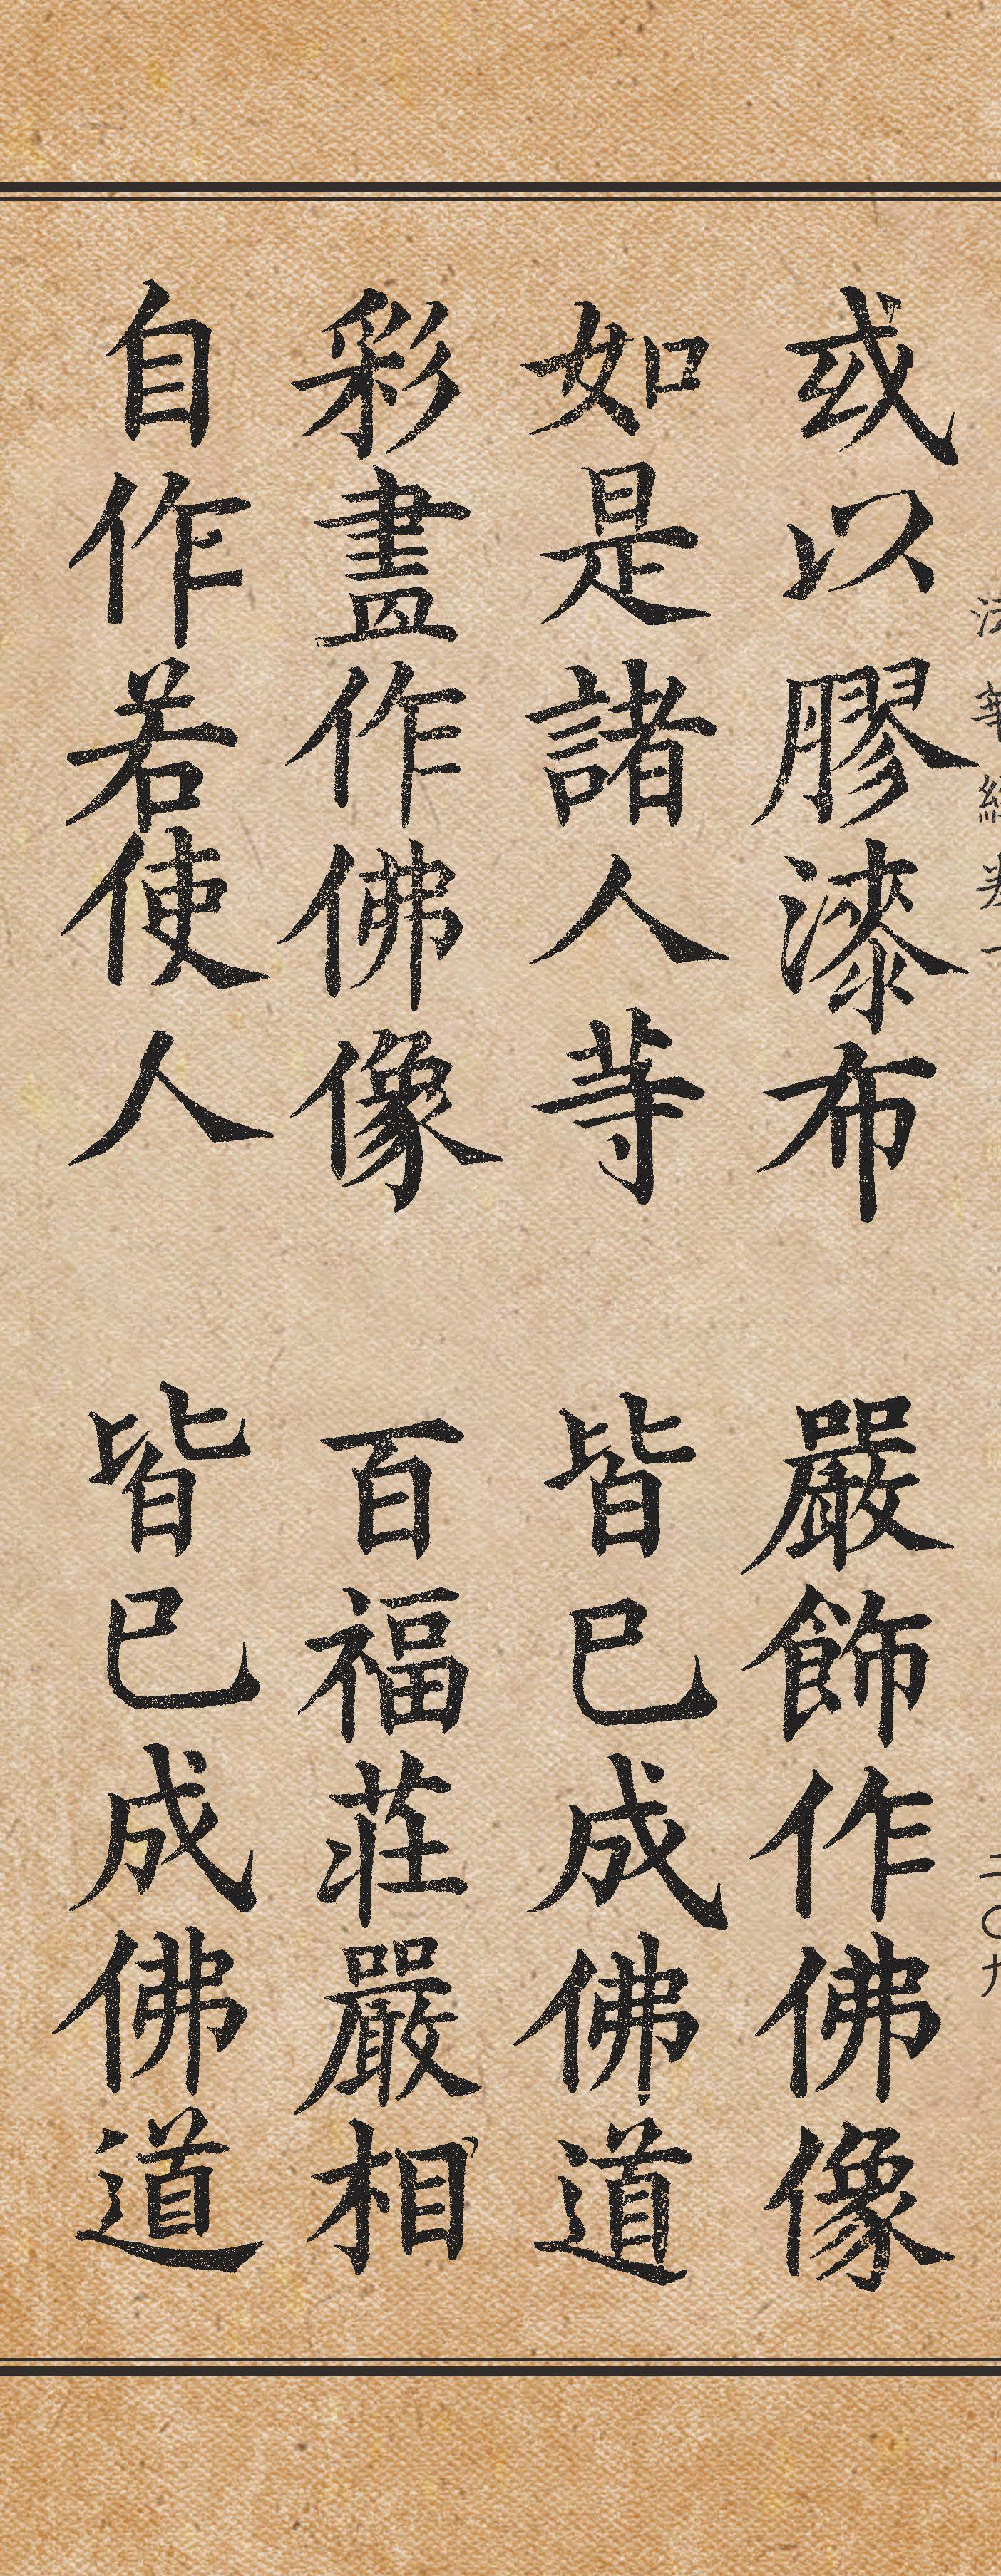 或以膠漆布　嚴飾作佛像
如是諸人等　皆已成佛道
彩畫作佛像　百福荘嚴相
自作若使人　皆已成佛道